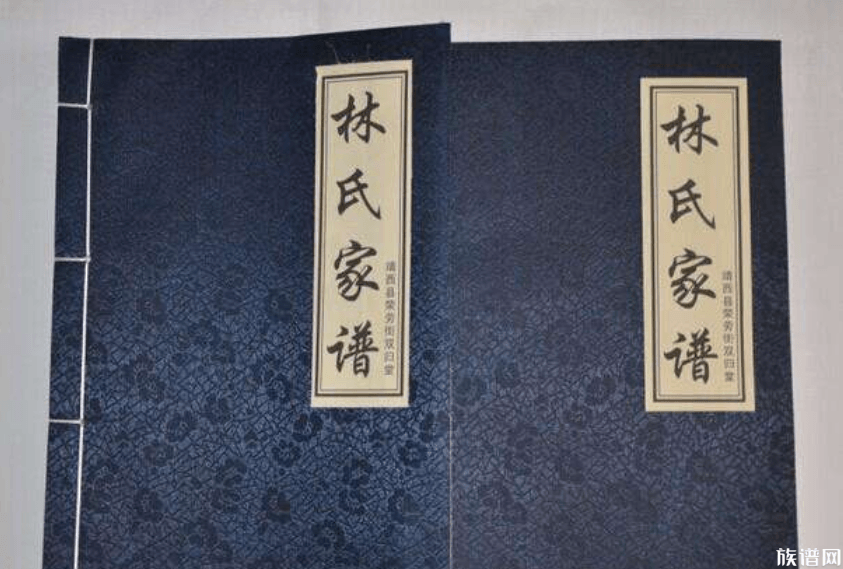 林氏家谱
靖西县荣劳街双归堂
林氏家谱
靖西县荣劳街双归堂
族谱网